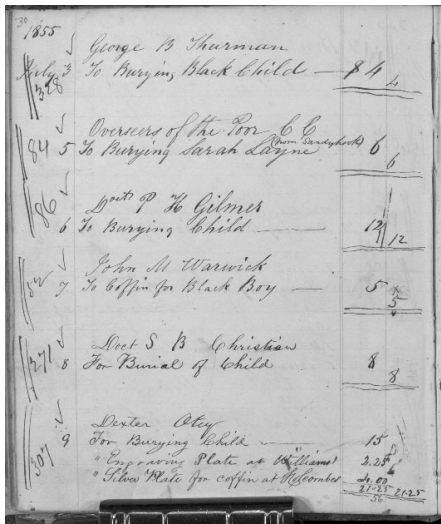 30
1855
George B Thurman
July 3 To Burying Black Child — $ 4 4
328
Overseers of the Poor C C
84 5 To Burying Sarah Layne (from Sandyhook) 6 6
86 Doct P H Gilmer
6 To Burying Child — 12 12
John M Warwick
52 7 To Coffin for Black Boy — 5 5
271 Doct S B Christian
8 For Burial of Child 8 8
Dexter Otey
9 For Burying Child — 15
307 " Engraving Plate at Williams' 2.25
" Silver Plate for coffin at 4.00
21.25 21.25
56